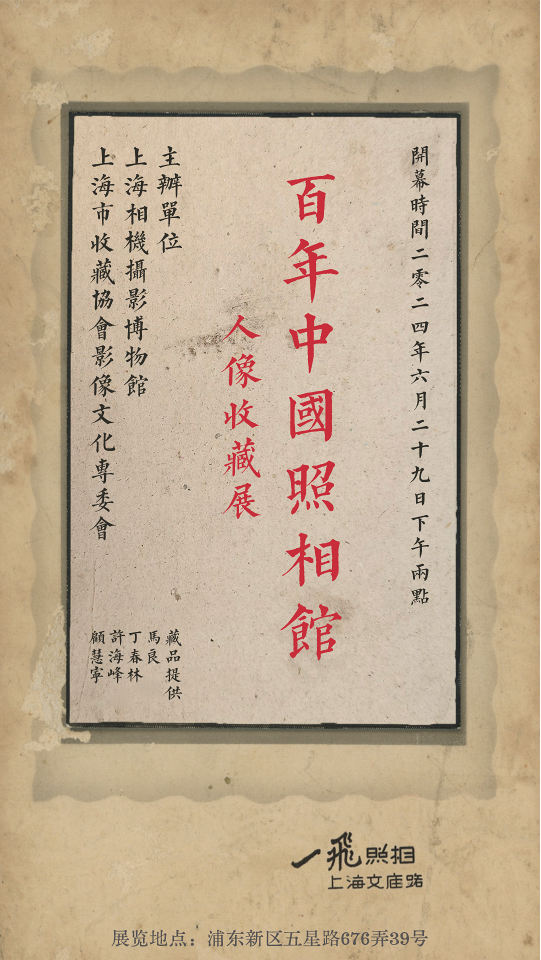 開幕時間二零二四年六月二十九日下午兩點
百年中國照相館
人像收藏展
主辦單位
上海相機攝影博物館
上海市收藏協會影像文化專委會
藏品提供
馬良
丁春林
許海峰
顧慧寧
一飛照相
上海文庙路
展览地点：浦东新区五星路676弄39号